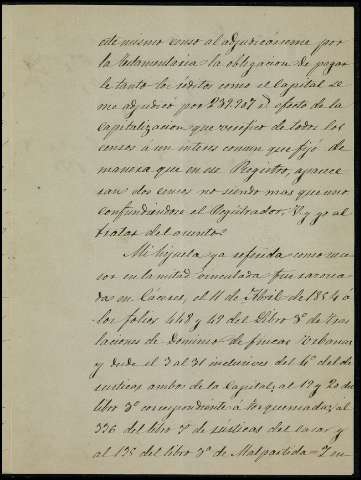 este mismo censo al adjudicárseme por
la Testamentaria la obligacion de pagar
lo tanto los réditos como el Capital se
me adjudicó por 239.207 á efecto de la
Capitalizacion que verificó de todos los
censos á un interes comun que fijó De
manera que en ese Registro, aparece
ran dos censos no siendo mas que uno
confundiendose el Registrador, V. y yo al
tratar del asunto.
Mi hijuela ya referida como suce
sor en la mitad vinculada fue
das en Cáceres, el 11 de Abril de 1854 á
los folios 448 y 49 del Libro 3º de tras
laciones de dominio de fincas urbanas
y desde el 3 al 31 inclusives del 4º del de
rusticas ambos de la Capital; al 19 y 20 de
libro 3º correspondiente á Torquemada; al
336 del libro 7º de rústicas del Casar y
al 138 del libro 3º de Malpartida =